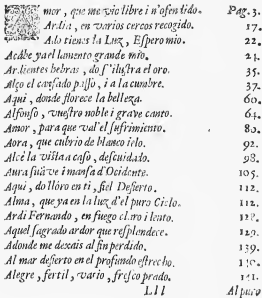 Amor, que me vio libre i n'ofendido. Pag. 3.
Ardia, en varios cercos recogido. 17.
Ado tienes la Luz, Espero mio. 22.
Acabe ya el lamento grande mio. 24.
Ardientes hebras, do s'ilustra el oro. 35.
Alço el cansado passo, i a la cumbre. 37.
Aqui, donde florece la belleza. 60.
Alfonso, vuestro noble i grave canto. 64.
Amor, para que val'el sufrimiento. 80.
Aora, que cubrio de blanco ielo. 92.
Alcè la vista a caso, descuidado. 98.
Aura suàve i mansa d'Ocidente. 105.
Aqui, do lloro en ti, fiel Desierto. 112.
Alma, que ya en la luz d'el puro Cielo. 112.
Ardi Fernando, en fuego claro i lento. 128.
Aquel sagrado ardor que resplendece. 129.
Adonde me dexais al fin perdido. 139.
Al mar desierto en el profundo estrecho.
Alegre, fertil, vario, fresco prado. 141.
Lll Al puro